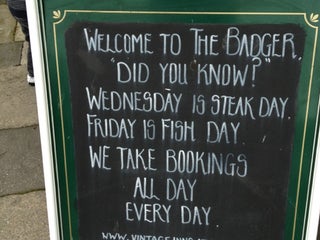 WELCOME TO THE BADGER.
"DID YOU KNOW?"
WEDNESDAY IS STEAK DAY.
FRIDAY IS FISH DAY.
WE TAKE BOOKINGS
ALL DAY
EVERY DAY.